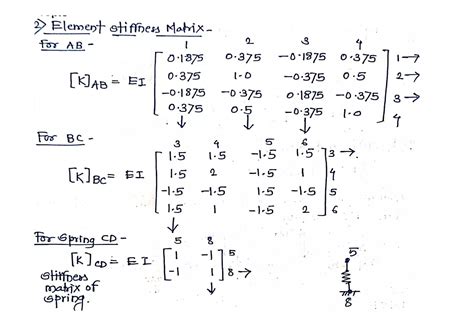 2) Element stiffness Matrix -
For AB -
1 2 3 4
0.1875 0.375 -0.1875 0.375 1→
[K]AB = EI 0.375 1.0 -0.375 0.5 2→
-0.1875 -0.375 0.1875 -0.375 3→
0.375 0.5 -0.375 1.0 4
For BC -
3 4 5 6
1.5 1.5 -1.5 1.5 3→
[K]BC = EI 1.5 2 -1.5 1 4
-1.5 -1.5 1.5 -1.5 5
1.5 1 -1.5 2 6
For Spring CD -
5 8
[K]CD = EI 1 -1 5
-1 1 8→
stiffness
matrix of
spring.
5
8